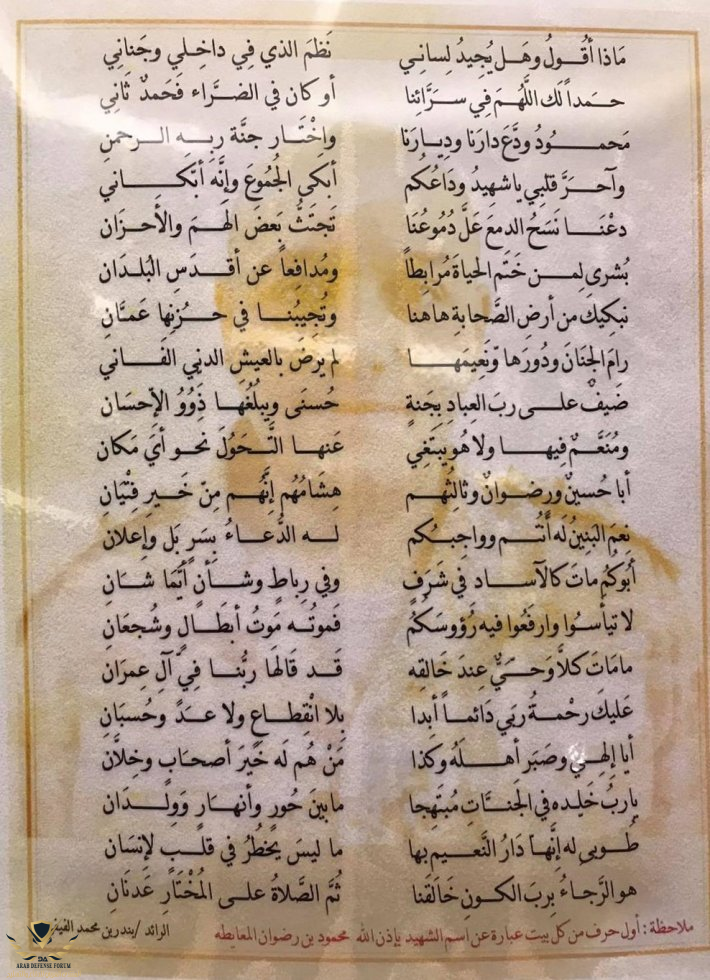 مَاذا أقُولُ وهَل يُجِيدُ لِساني نَظمَ الذي فِي داخِلي وجَناني
حمَداً لَك اللَّهُمَ فِي سرَّائِنا أو كان في الضرَّاء فَحَمدٌ ثَاني
محمُودُ ودَّعَ دارَنا ودِيارَنا واِخْتَار جنَّة ربِهِ الرحمنِ
وآحرَّ قلبِي ياشهِيدُ وداعُكم أبكى الجُمُوعَ وإنَّهُ أبّكَاني
دعْنَا نَسَحُ الدمِعَ عَلَّ دُمُوعُنَا تَجتَثُّ بَعضَ الهَمَ والأحزَان
بُشرى لِمن خَتَم الحياةَ مُرابِطاً ومُدافِعاً عن أقدَسِ البُلدَان
نبكِيكَ من أرضِ الصَّحابةِ هاهنا وتُجِيبُنا في حُزنِها عَمَّانِ
رامَ الجِنَانَ ودُورَها ونَعِيمَها لم يرضَ بالعيشِ الدنِيِ الفَاني
ضَيفٌ على ربَ العِبادِ بِجَنةٍ حُسنَى ويبلُغُها ذَوُوُ الإحسَان
ومُنَعَّمٌ فِيها ولا هُو يبتَغِي عَنها التَّحَوُلَ نحو أيَ مَكان
أبا حُسينٌ ورضوانٌ وثالِثُهم هِشَامُهُم إنَّهُم مِنّ خَيرِ فِتْيَانِ
نِعمَ البَنِينُ لَه أنتُم وواجِبكُم له الدُّعاءُ بِسَرٍ بَل وإعلان
أبُوكمُ ماتَ كالآساد في شَرَفٍ وفي رِباطٍ وشأنٍ أيَّمَا شَانِ
لا تيأسُوا وارفَعُوا فيه رُؤوسَكُمُ فَموتُه مَوتُ أبطَالٍ وشُجعَانِ
مامَاتَ كلاَّ وَحيٌّ عِندَ خَالقِه قَد قَالهَا ربُّنا فِي آلِ عِمرَان
عَليكَ رحْمةُ ربَي دَائماً أبدا بِلا انْقِطاعٍ ولا عدَّ وحُسبَانِ
أيا إلهِي وصَبَر أهلَهُ وكذا مَنْ هُم لَه خَيرَ أصحَابٍ وخِلاَّن
ياربُ خَلِده في الجَنَّاتِ مُبتَهِجا مابينَ حُورٍ وأنهارٍ وَوِلدَان
طُوبى له إنَّها دَارُ النَّعيم بها ما ليسَ يَخطُرُ في قلبٍ لإنسَان
هو الرَّجاءُ بربَ الكونِ خَالقَنا ثُمَّ الصَّلاةُ على المُخْتَارِ عَدنَانِ
ملاحظة : أول حرف من كل بيت عبارة عن اسم الشهيد بإذن الله محمود بن رضوان المعايطه
الرائد / بندر بن محمد
DA
ARAB DEFENSE FORUM